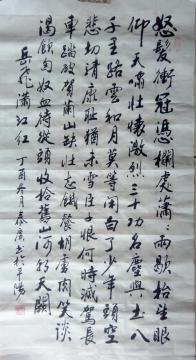 怒髮衝冠憑欄處瀟〻雨歇抬望眼
仰天嘯壯懷激烈三十功名塵與土八
千里路雲和月莫等閒白了少年頭空
悲切靖康耻猶未雪臣子恨何時滅駕長
車踏破賀蘭山缺壯志飢餐胡虜肉笑談
渴飲匈奴血待從頭收拾舊山河朝天闕
岳飛滿江红 丁酉冬月 於平陽